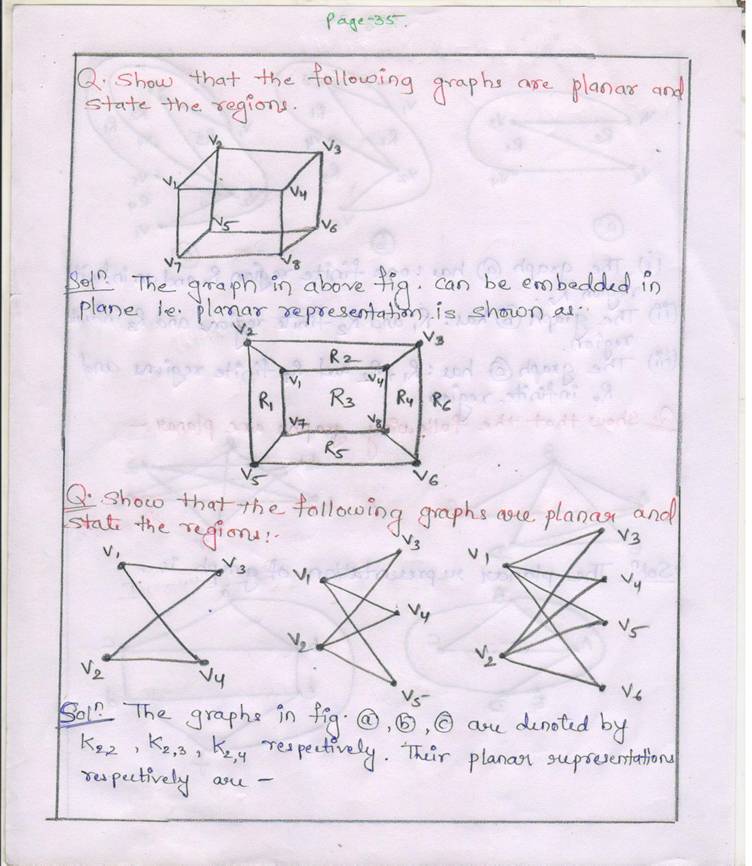 Page-35.
Q. Show that the following graphs are planar and
state the regions.
V2 V3
V1 V4
V5 V6
V7 V8
Soln. The graph in above fig. can be embedded in
plane i.e. planar representation is shown as:-
V2 V3
R2
V1 V4
R1 R3 R4 R6
V7 V8
R5
V5 V6
Q. Show that the following graphs are planar and
state the regions:-
V1 V3
V2 V4
V3
V1
V4
V2
V5
V3
V1
V4
V5
V2
V6
Soln. The graphs in fig. ⓐ, ⓑ, ⓒ are denoted by
K2,2 , K2,3 , K2,4 respectively. Their planar representations
respectively are -